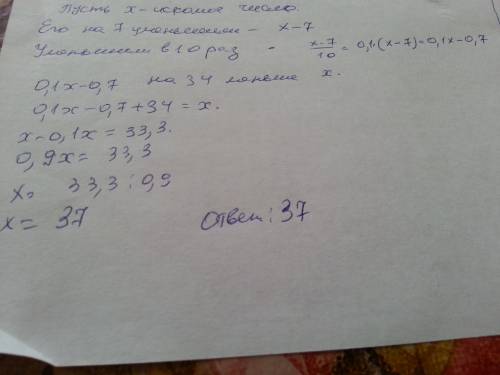 Пусть x - искомое число.
Его на 7 уменьшили - x-7
Уменьшим в 10 раз - x-7/10 = 0,1·(x-7)=0,1x-0,7
0,1x-0,7 на 34 меньше x.
0,1x-0,7+34 = x.
x-0,1x = 33,3.
0,9x = 33,3
x = 33,3 : 0,9
x = 37 Ответ: 37